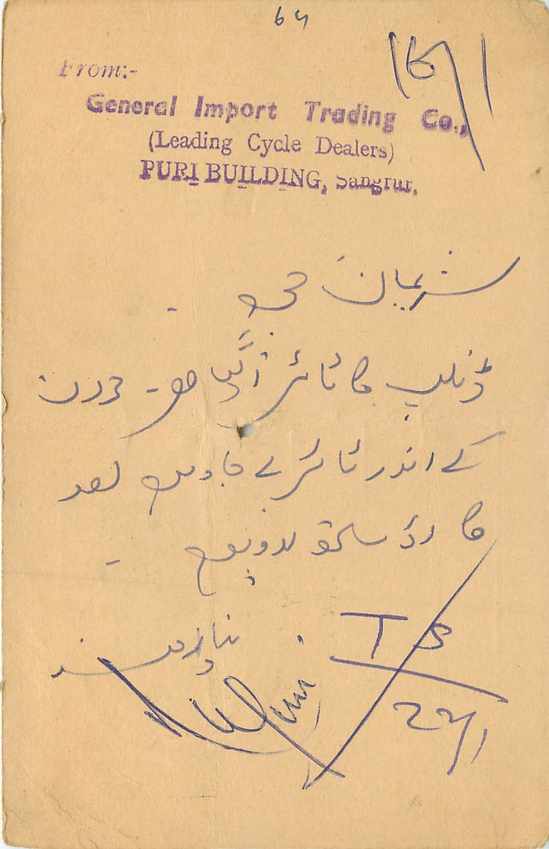 64
From:-
General Import Trading Co.,
(Leading Cycle Dealers)
PURI BUILDING, Sangrur.
شریمان جی
ڈنلپ کا ٹائر آگیا ہے۔ دن
کے اندر ٹائر لے جاویں
کارڈ ساتھ
نیازمند
T 3
22/1